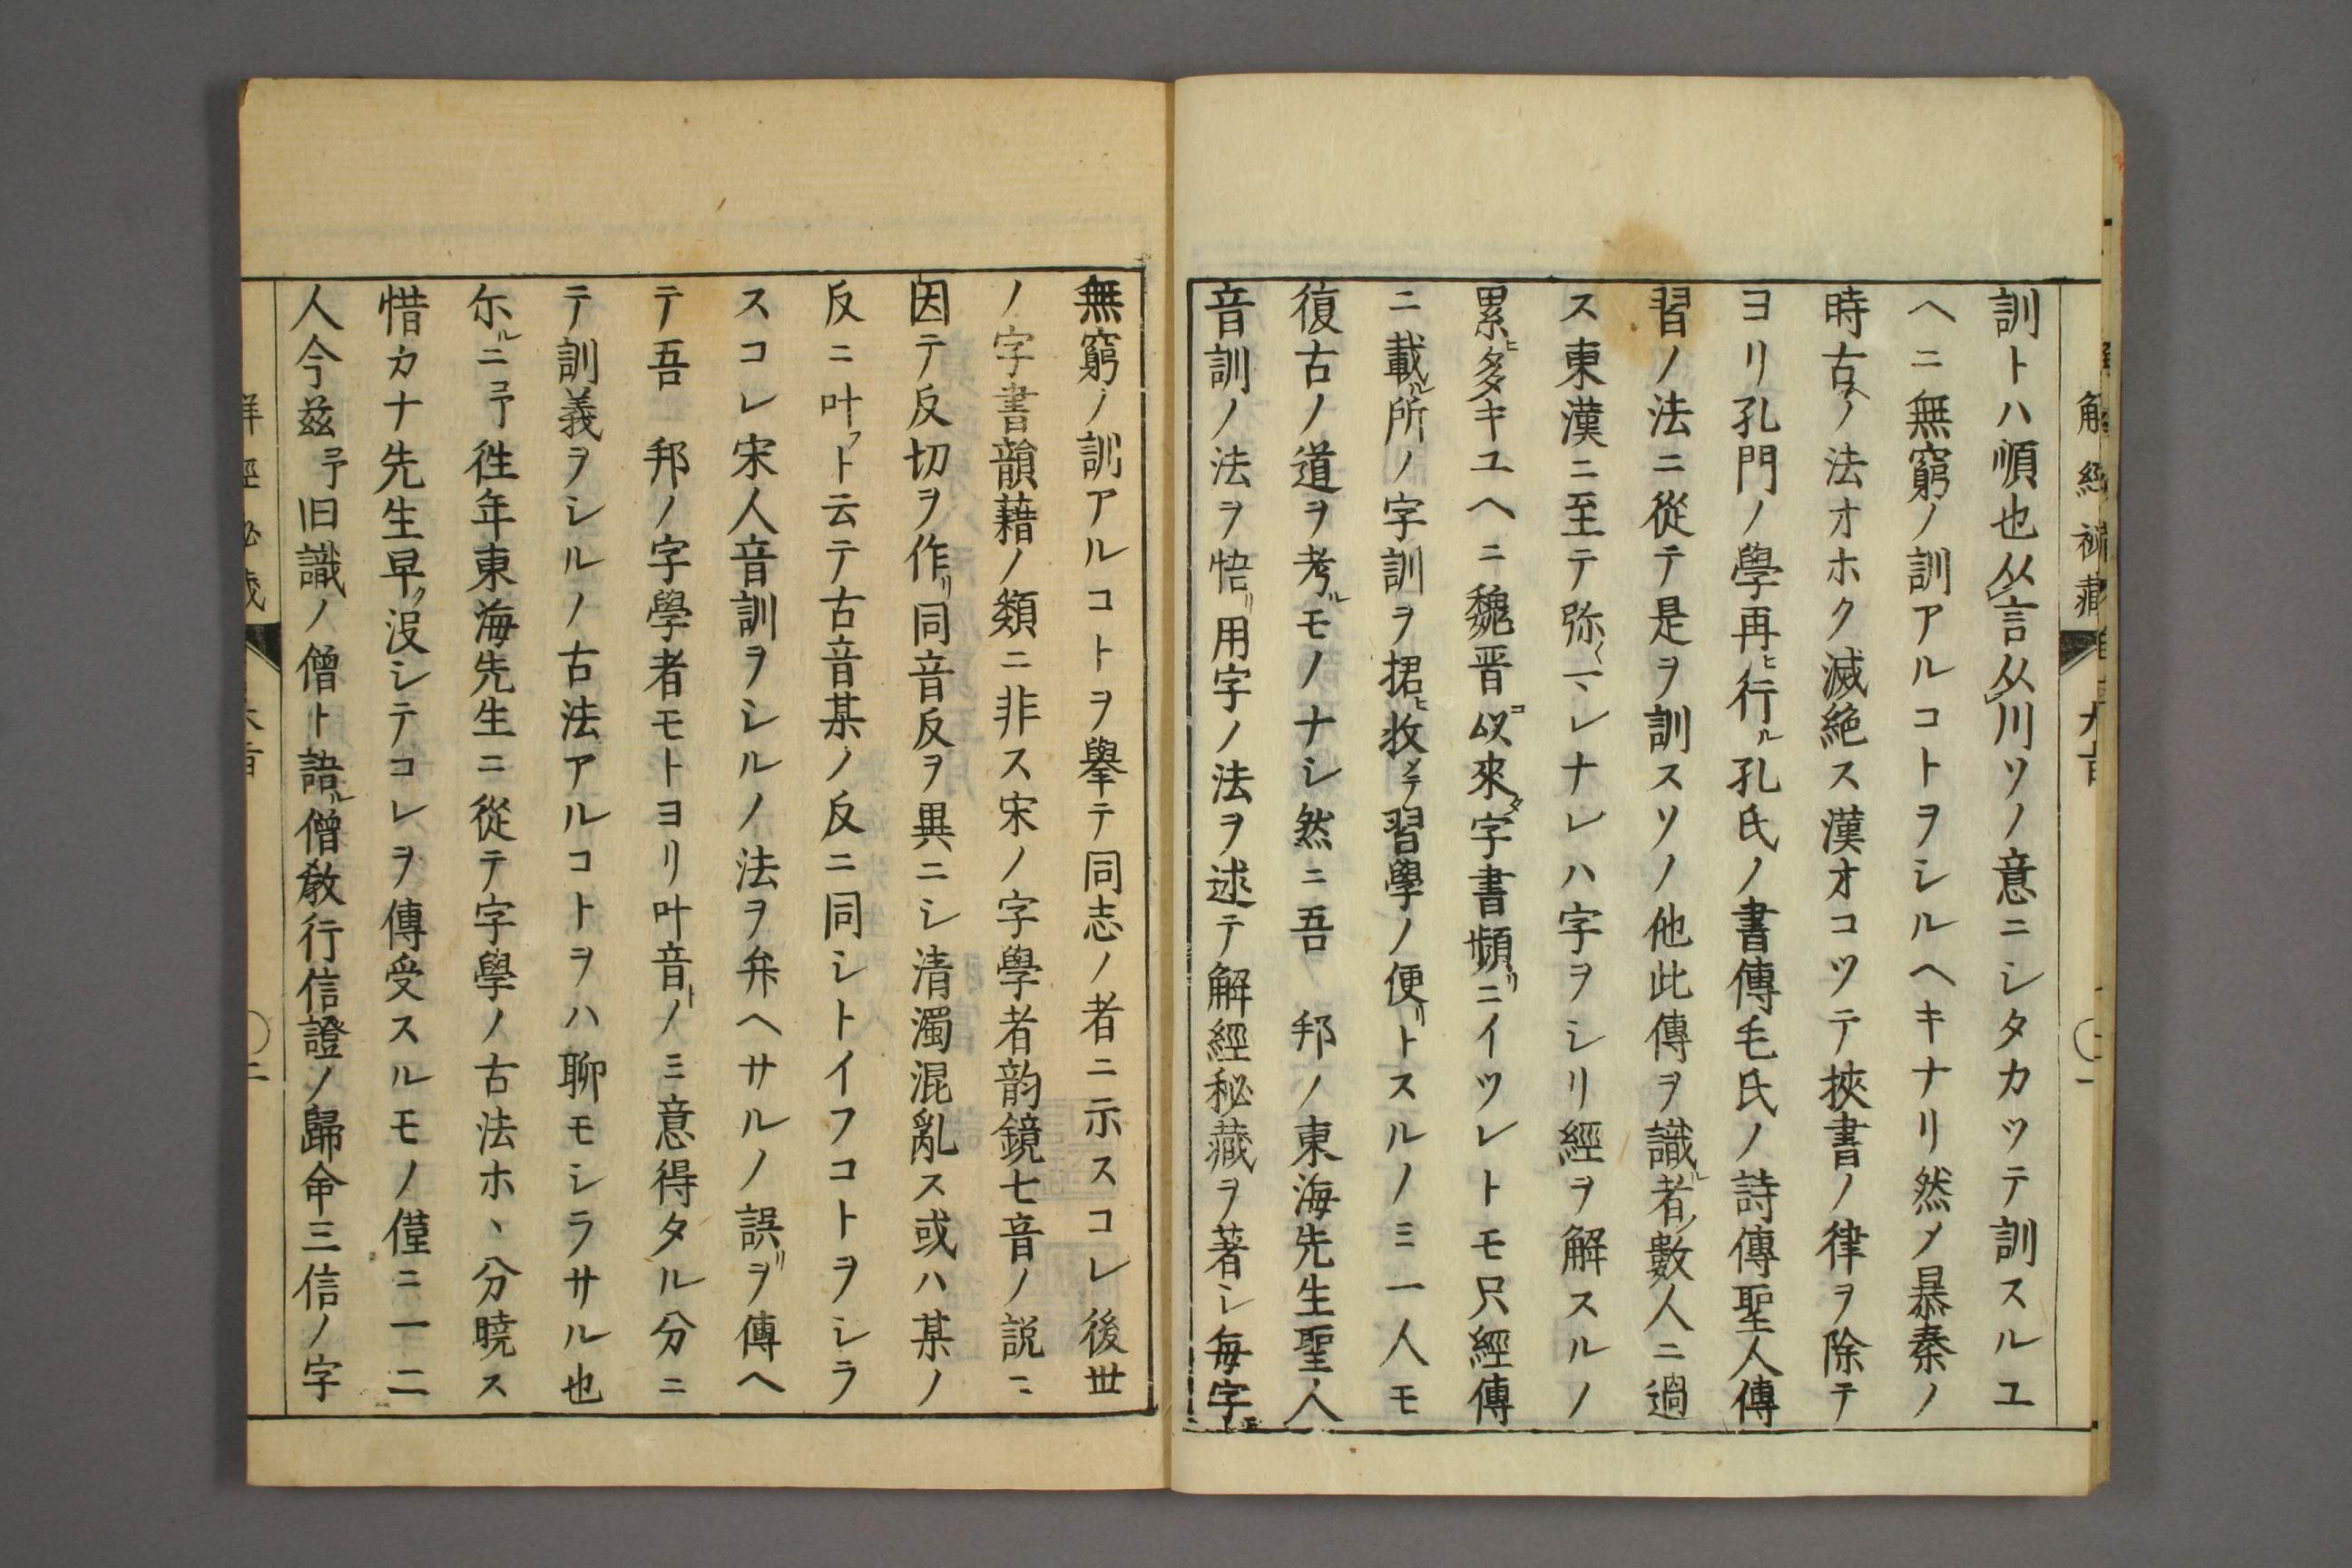 訓トハ順也从言从川ソノ意ニシタカツテ訓スルユ
ヘニ無窮ノ訓アルコトヲシルヘキナリ然ノ暴秦ノ
時古ヘノ法オホク滅絶ス漢オコツテ挾書ノ律ヲ除テ
ヨリ孔門ノ學再ヒ行ル孔氏ノ書傳毛氏ノ詩傳聖人傳
習ノ法ニ從テ是ヲ訓スソノ他此傳ヲ識ル者ノ數人ニ過
ス東漢ニ至テ弥〱マレナレハ字ヲシリ經ヲ解スルノ
累ヒ多キユヘニ魏晋以コ來タ字書頻リニイツレトモ只經傳
ニ載ル所ノ字訓ヲ捃ヒ收メテ習學ノ便リトスルノミ一人モ
復古ノ道ヲ考ルモノナシ然ニ吾 邦ノ東海先生聖人
音訓ノ法ヲ悟リ用字ノ法ヲ述テ解經秘藏ヲ著シ毎字
無窮ノ訓アルコトヲ擧テ同志ノ者ニ示スコレ後世
ノ字書韻藉ノ類ニ非ス宋ノ字學者韵鏡七音ノ説ニ
因テ反切ヲ作リ同音反ヲ異ニシ清濁混亂ス或ハ某ノ
反ニ叶フト云テ古音某ノ反ニ同シトイフコトヲシラ
スコレ宋人音訓ヲシルノ法ヲ弁ヘサルノ誤リヲ傳ヘ
テ吾 邦ノ字學者モトヨリ叶音トノミ意得タル分ニ
テ訓義ヲシルノ古法アルコトヲハ聊モシラサル也
尓ルニ予徃年東海先生ニ從テ字學ノ古法ホヽ分暁ス
惜カナ先生早ク没シテコレヲ傳受スルモノ僅ニ一二
人今兹予旧識ノ僧ト語ル僧教行信證ノ歸命三信ノ字